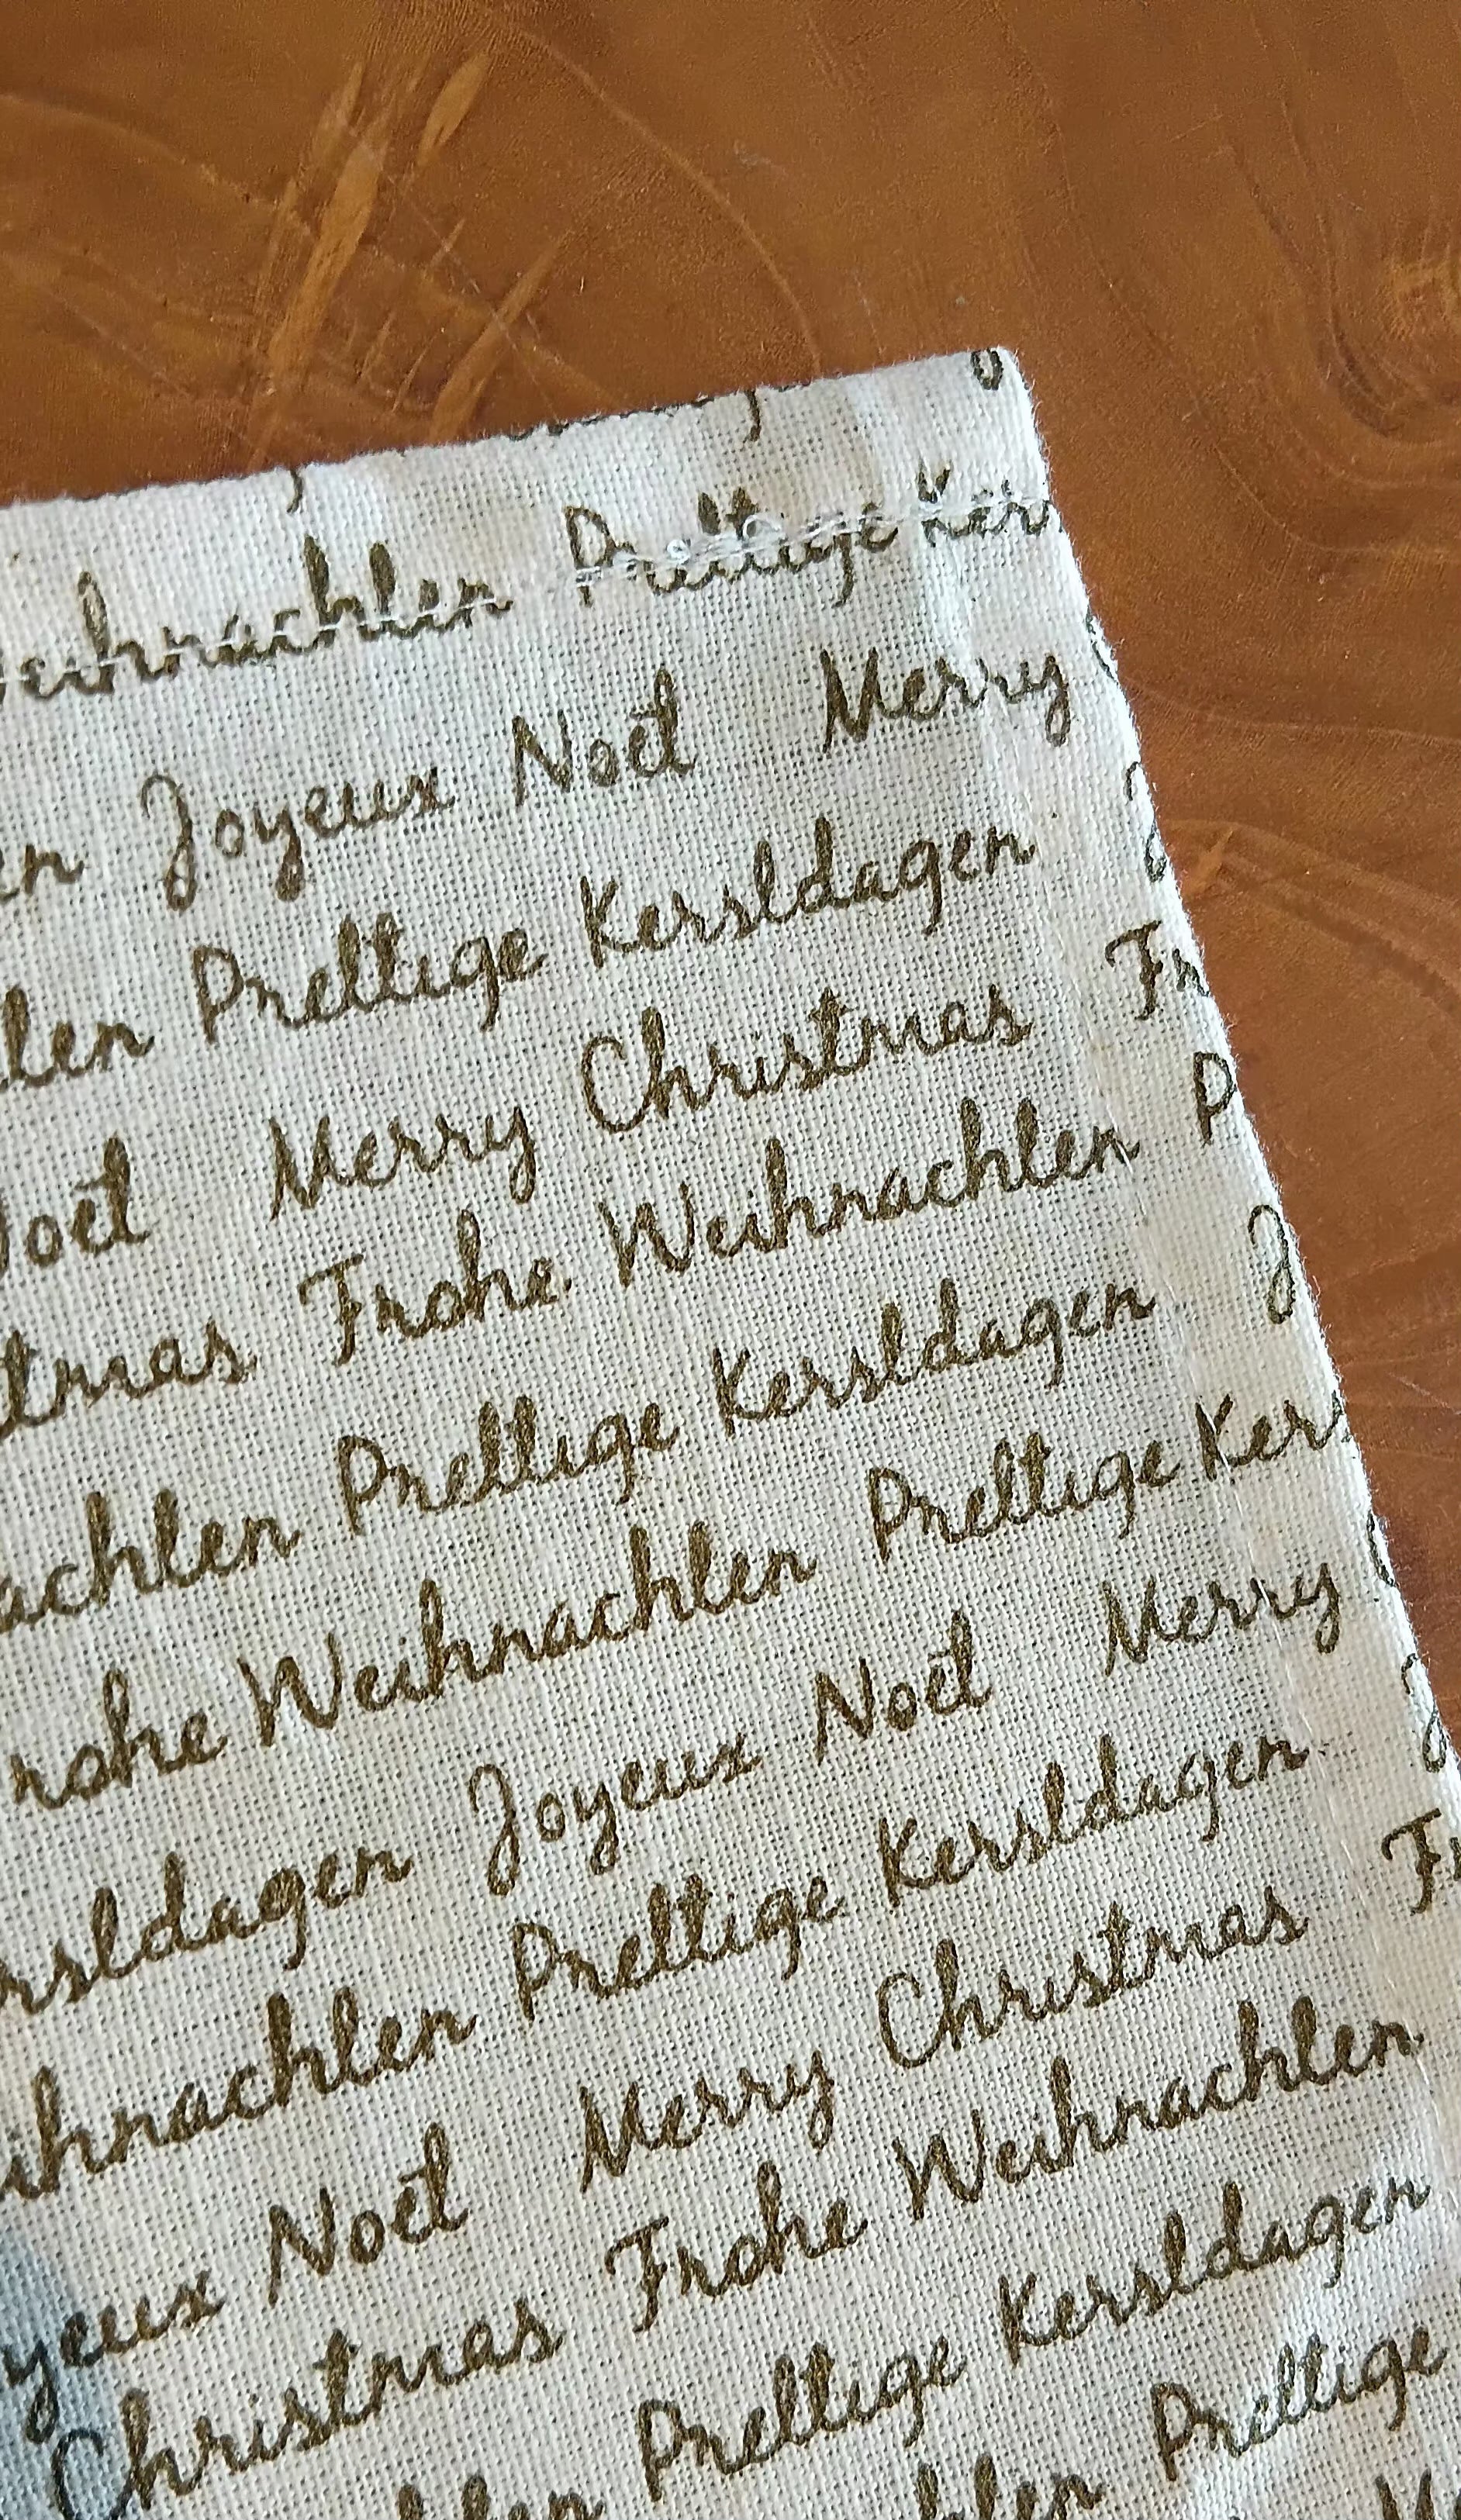 Weihnachten Prettige Ker
Joyeux Noël Merry
Prettige Kerstdagen
Noël Merry Christmas Fr
Christmas Frohe Weihnachten P
achten Prettige Kerstdagen J
rohe Weihnachten Prettige Ker
rstdagen Joyeux Noël Merry
ihnachten Prettige Kerstdagen J
yeux Noël Merry Christmas Fr
Christmas Frohe Weihnachten
Prettige Kerstdagen
Prettige